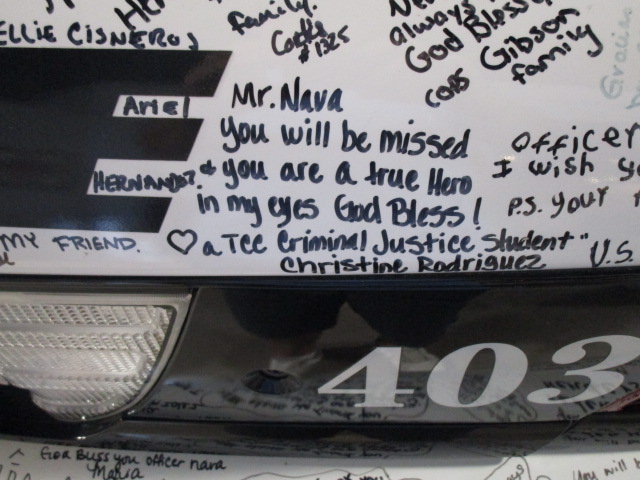 family.
Castle
#1325
always
God Bless
Gibson
family
cops
ELLIE CISNEROS
ARIEL
HERNANDEZ
MY FRIEND.
Mr. Nava
you will be missed
& you are a true Hero
in my eyes God Bless!
♡ a TCC Criminal Justice Student"
Christine Rodriguez
Officer
I wish
P.S. your
U.S.
Gracias
403
God Bless you officer nava
Maria
You will b